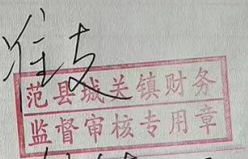 准支
范县城关镇财务
监督审核专用章